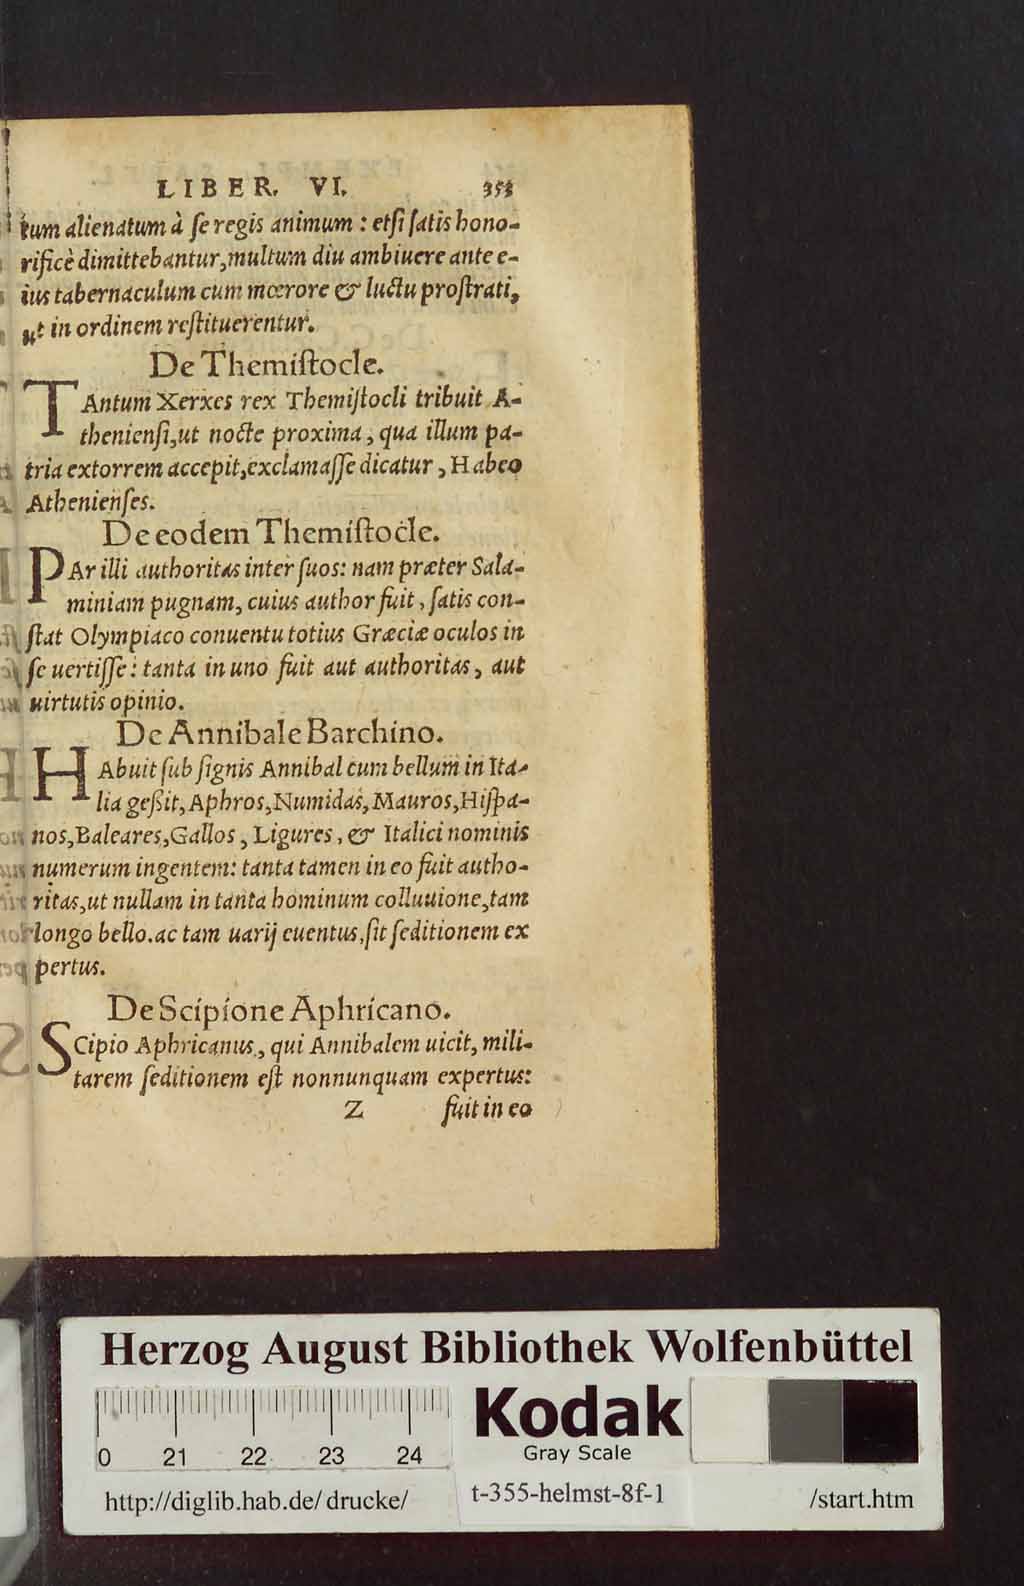 LIBER. VI. 353
tum alienatum à ſe regis animum : etſi ſatis hono-
rificè dimittebantur, multum diu ambiuere ante e-
ius tabernaculum cum mœrore & luctu proſtrati,
ut in ordinem reſtituerentur.
De Themiſtocle.
TAntum Xerxes rex Themiſtocli tribuit A-
thenienſi, ut nocte proxima, qua illum pa-
tria extorrem accepit, exclamaſſe dicatur, Habeo
Athenienſes.
De eodem Themiſtocle.
PAr illi authoritas inter ſuos: nam præter Sala-
miniam pugnam, cuius author fuit, ſatis con-
ſtat Olympiaco conuentu totius Græciæ oculos in
ſe uertiſſe: tanta in uno fuit aut authoritas, aut
uirtutis opinio.
De Annibale Barchino.
HAbuit ſub ſignis Annibal cum bellum in Ita-
lia geßit, Aphros, Numidas, Mauros, Hiſpa-
nos, Baleares, Gallos, Ligures, & Italici nominis
numerum ingentem: tanta tamen in eo fuit autho-
ritas, ut nullam in tanta hominum colluuione, tam
longo bello. ac tam uarij euentus, ſit ſeditionem ex
pertus.
De Scipione Aphricano.
SCipio Aphricanus, qui Annibalem uicit, mili-
tarem ſeditionem eſt nonnunquam expertus:
Z fuit in eo
Herzog August Bibliothek Wolfenbüttel
Kodak
Gray Scale
0 21 22 23 24
http://diglib.hab.de/drucke/ t-355-helmst-8f-1 /start.htm